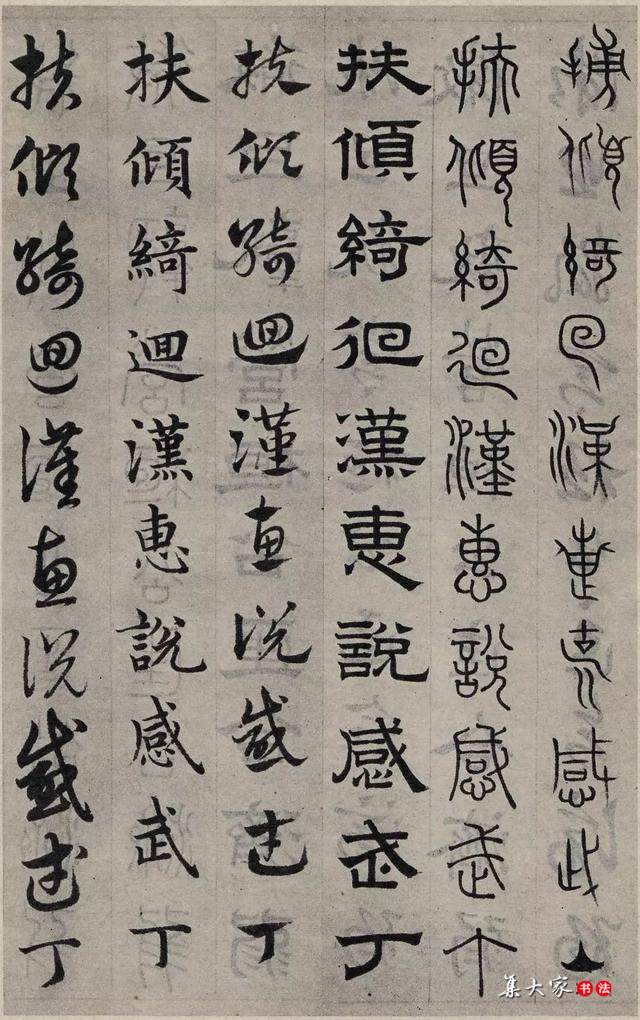 扶傾綺迴漢惠說感武丁
扶傾綺迴漢惠說感武丁
扶傾綺佪漢惠說感武丁
扶傾綺迴漢惠說感武丁
扶傾綺迴漢惠說感武丁
扶傾綺迴漢惠說感武丁
集大家 书法